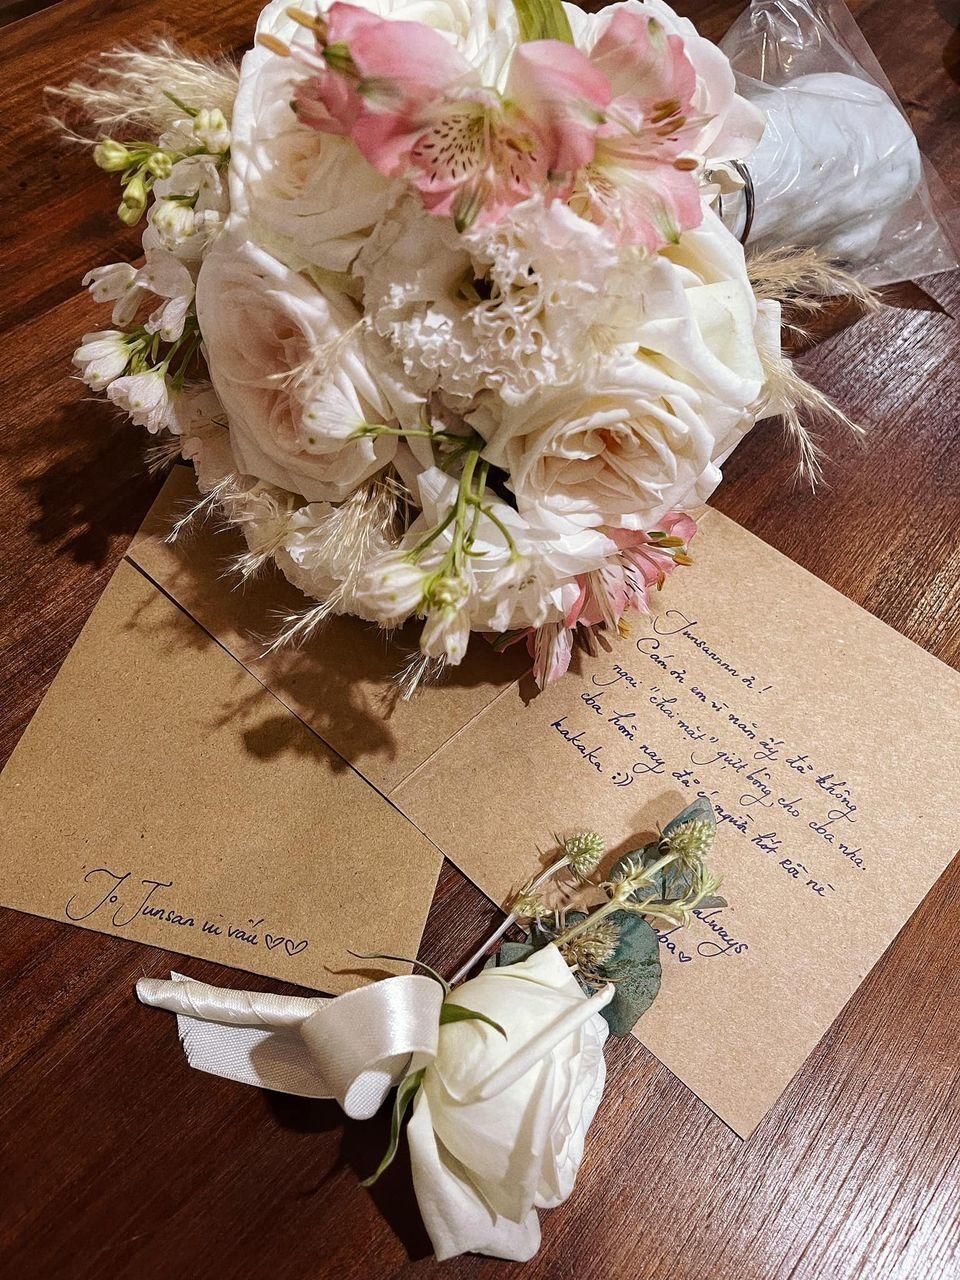 Junsannnn ơi!
Cám ơn em vì năm ấy đã không
ngại "chai mặt" giựt bông cho cba nha.
cba hôm nay đã có người hốt rồi nè
kakaka :))
always
cba ♡
To Junsan iu vấu ♡♡